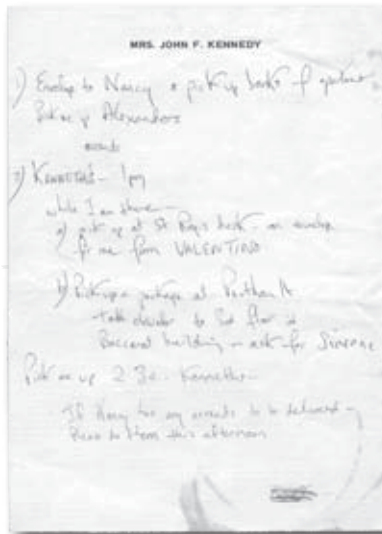 MRS. JOHN F. KENNEDY
1) Envelop to Nancy & pick up books of apartment
Pick me up Alexanders
errands
2) KENNETH'S - 1 pm
while I am there -
a) pick up at St Regis desk - an envelop
for me from VALENTINO
b) Pick up a package at Penthouse A
Take elevator to floor in
Baccarat building - ask for Simone
Pick me up 2 30 - Kenneths -
If Nancy has any errands to be delivered -
Please do them this afternoon